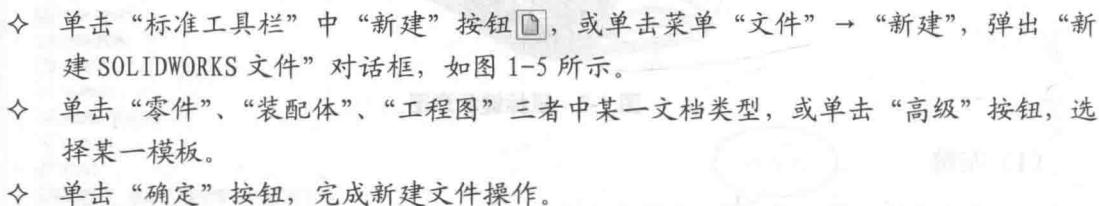 ✧ 单击“标准工具栏”中“新建”按钮，或单击菜单“文件” → “新建”，弹出“新
建 SOLIDWORKS 文件”对话框，如图 1-5 所示。
✧ 单击“零件”、“装配体”、“工程图”三者中某一文档类型，或单击“高级”按钮，选
择某一模板。
✧ 单击“确定”按钮，完成新建文件操作。